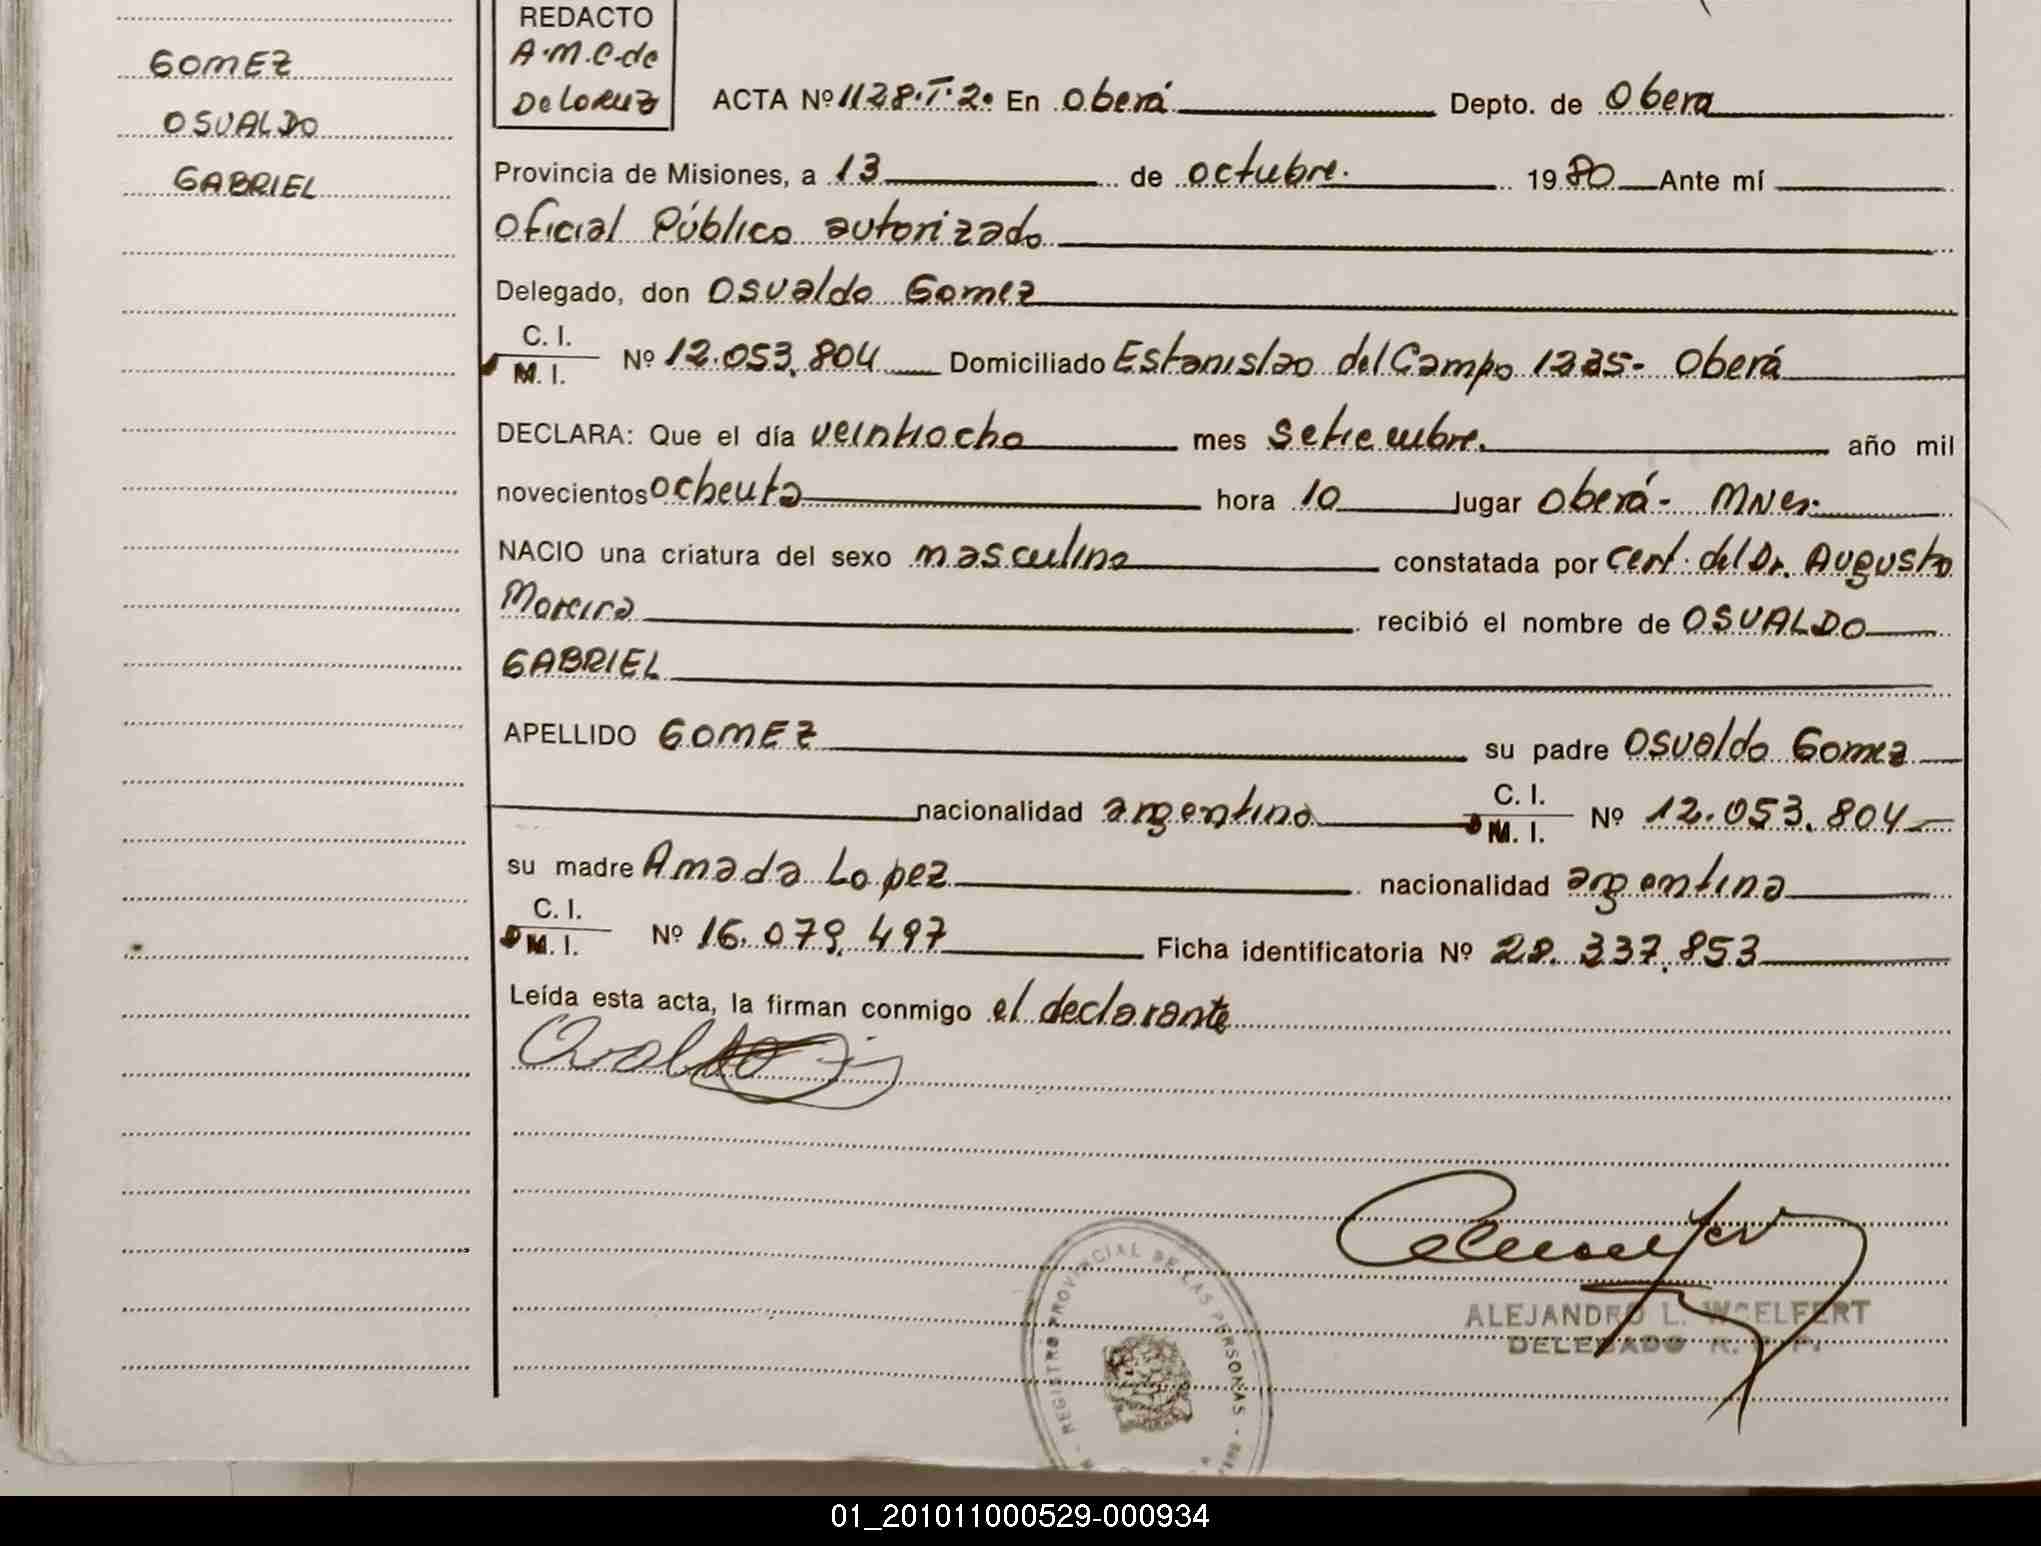 GOMEZ
OSVALDO
GABRIEL
REDACTO
A.M.C. de
De Loruz
ACTA Nº 1128.T.2º En Oberá Depto. de Obera
Provincia de Misiones, a 13 de octubre. 1980 Ante mí
Oficial Público autorizado
Delegado, don Osvaldo Gomez
C. I.
M. I.
Nº 12.053.804 Domiciliado Estanislao del Campo 1225- Oberá
DECLARA: Que el día veintiocho mes setiembre. año mil
novecientos ochenta hora 10 lugar Oberá- Mnes.
NACIO una criatura del sexo masculino constatada por cert. del Dr. Augusto
Moreira recibió el nombre de OSVALDO
GABRIEL
APELLIDO GOMEZ su padre Osvaldo Gomez
nacionalidad argentina C. I. M. I. Nº 12.053.804
su madre Amada Lopez nacionalidad argentina
C. I.
M. I.
Nº 16.079.497 Ficha identificatoria Nº 28.337.853
Leída esta acta, la firman conmigo el declarante
REGISTRO PROVINCIAL DE LAS PERSONAS
ALEJANDRO L. WOELFERT
DELEGADO R. P. P.
01_201011000529-000934